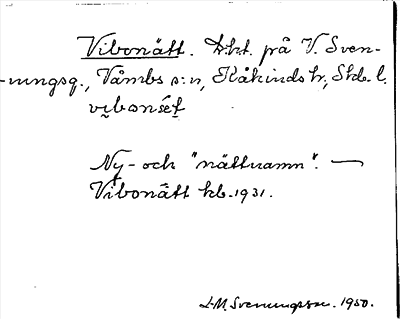 Vibonätt. Trkt. på V. Sven-
-ningsg., Våmbs s:n, Kåkinds hr, Skb. l.
vibonét
Ny- och "nättnamn". —
Vibonätt kb. 1931.
L-M. Svenungsson. 1950.